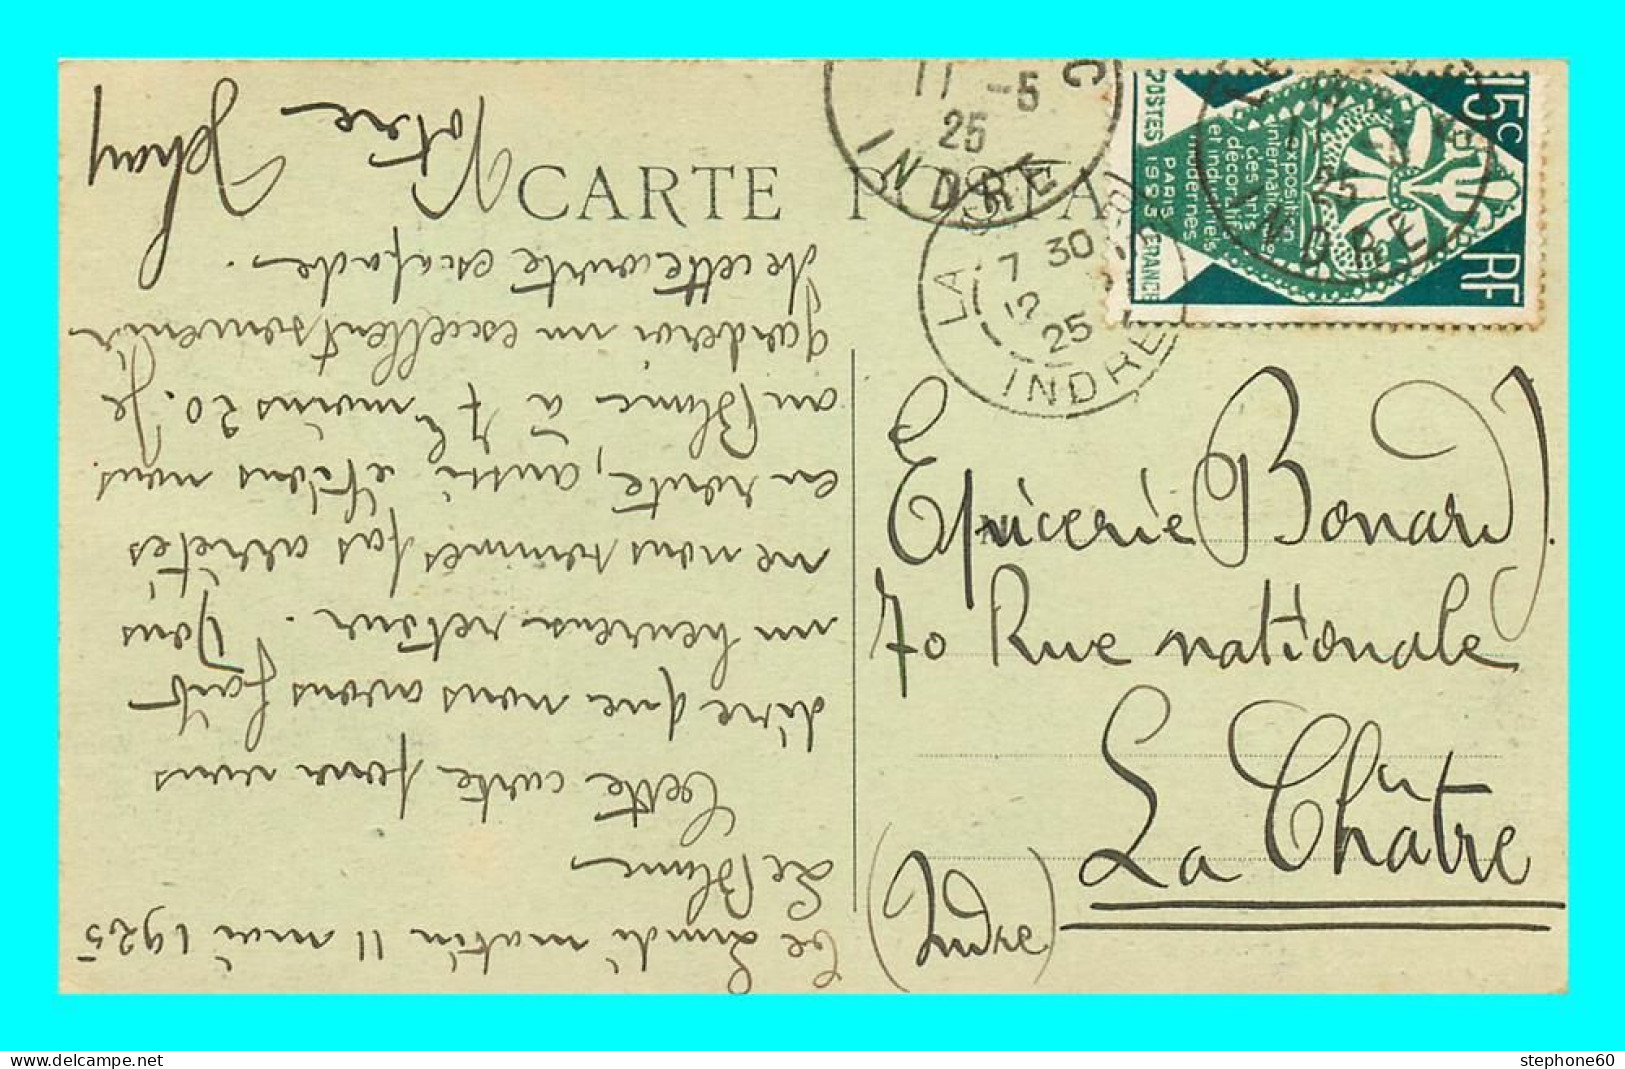 CARTE POSTA
11 -5
25
INDRE
C
LA
7 30
12
25
INDRE
15c
POSTES
FRANCE
RF
exposition
internationale
des arts
décoratifs
et industriels
modernes
PARIS
1925
25
INDRE
Epicerie Bonard.
70 Rue nationale
La Châtre
(Indre)
Ce Lundi matin 11 mai 1925
Le Blanc
Cette carte pour vous
dire que nous avons fait
un heureux retour. Nous
ne nous sommes pas arrêtés
en route, aussi étions nous
au Blanc à 7h moins 20. Je
garderai un excellent souvenir
de cette courte escapade.
Votre Jehay
stephone60